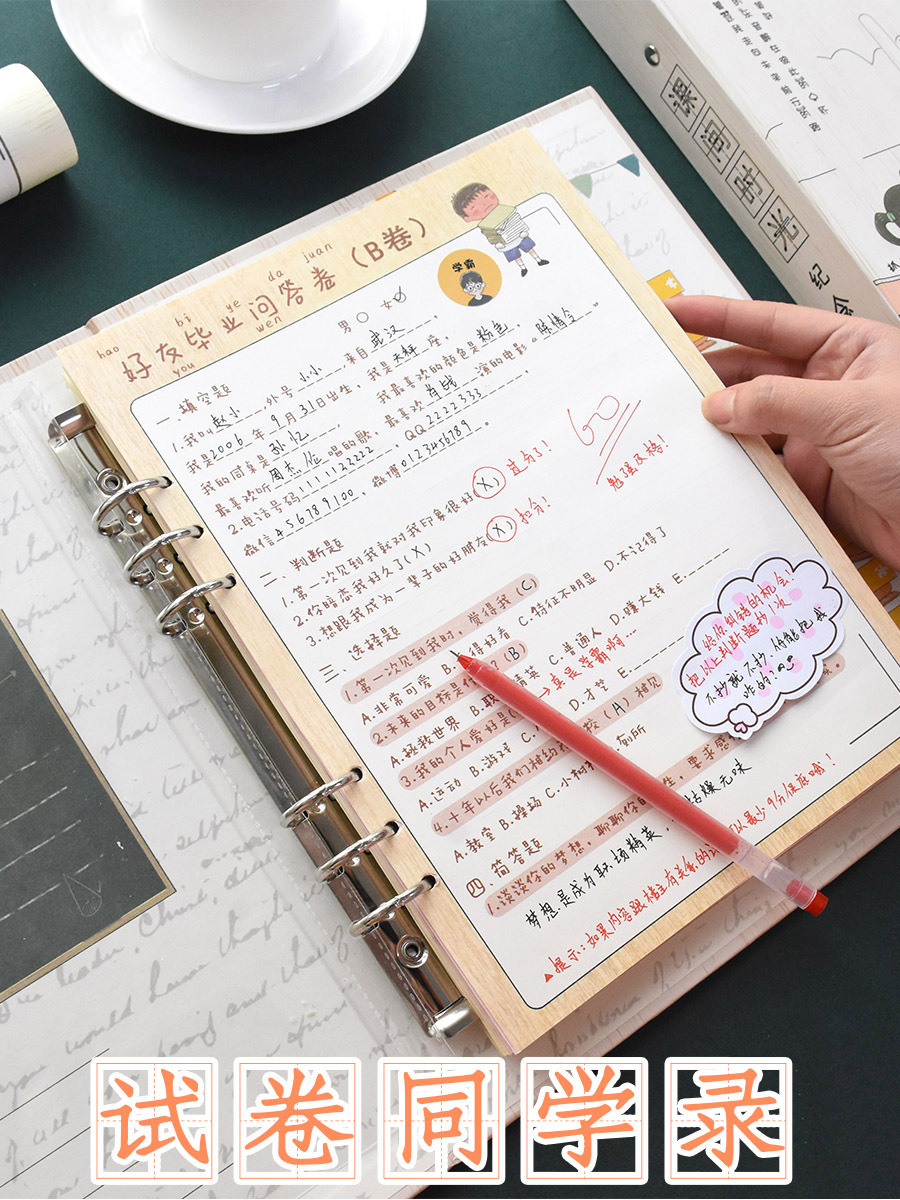 课间时光
纪念
hao you bi ye wen da juan
好友毕业问答卷（B卷）
学霸
男○ 女
一、填空题
1.我叫赵小，外号小小，来自武汉，
我是2006年9月31日出生，我是天秤座，
我的同桌是孙忆，我最喜欢的颜色是粉色，
最喜欢听周杰伦唱的歌，最喜欢肖战演的电影“陈情令”
2.电话号码1111122222，QQ2222333，
微信456789100，微博0123456789。
60
勉强及格！
二、判断题
1.第一次见到我就对我印象很好(X) 过分了！
2.你暗恋我好久了(X)
3.想跟我成为一辈子的好朋友(X) 扣分！
三、选择题
1.第一次见到我时，觉得我(C)
A.非常可爱 B.长得好看 C.特征不明显 D.不记得了
2.未来的目标是(B)
A.拯救世界 B.职场精英 C.普通人 D.赚大钱 E.
→真是学霸啊…
3.我的个人爱好是
A.运动 B.游戏 D.才艺 E.
4.十年以后我们相约在校(A)相见
A.教室 B.操场 C.小树林 厕所
四、简答题
1.谈谈你的梦想，聊聊你的 生，要求感
梦想是成为职场精英， 枯燥无味
▲提示：如果内容跟楼主有关系的话 以最少9分保底哦！
给你纠错的机会！
把以上判断题抄1次
不抄就不抄，你能把我
咋的？
试卷同学录